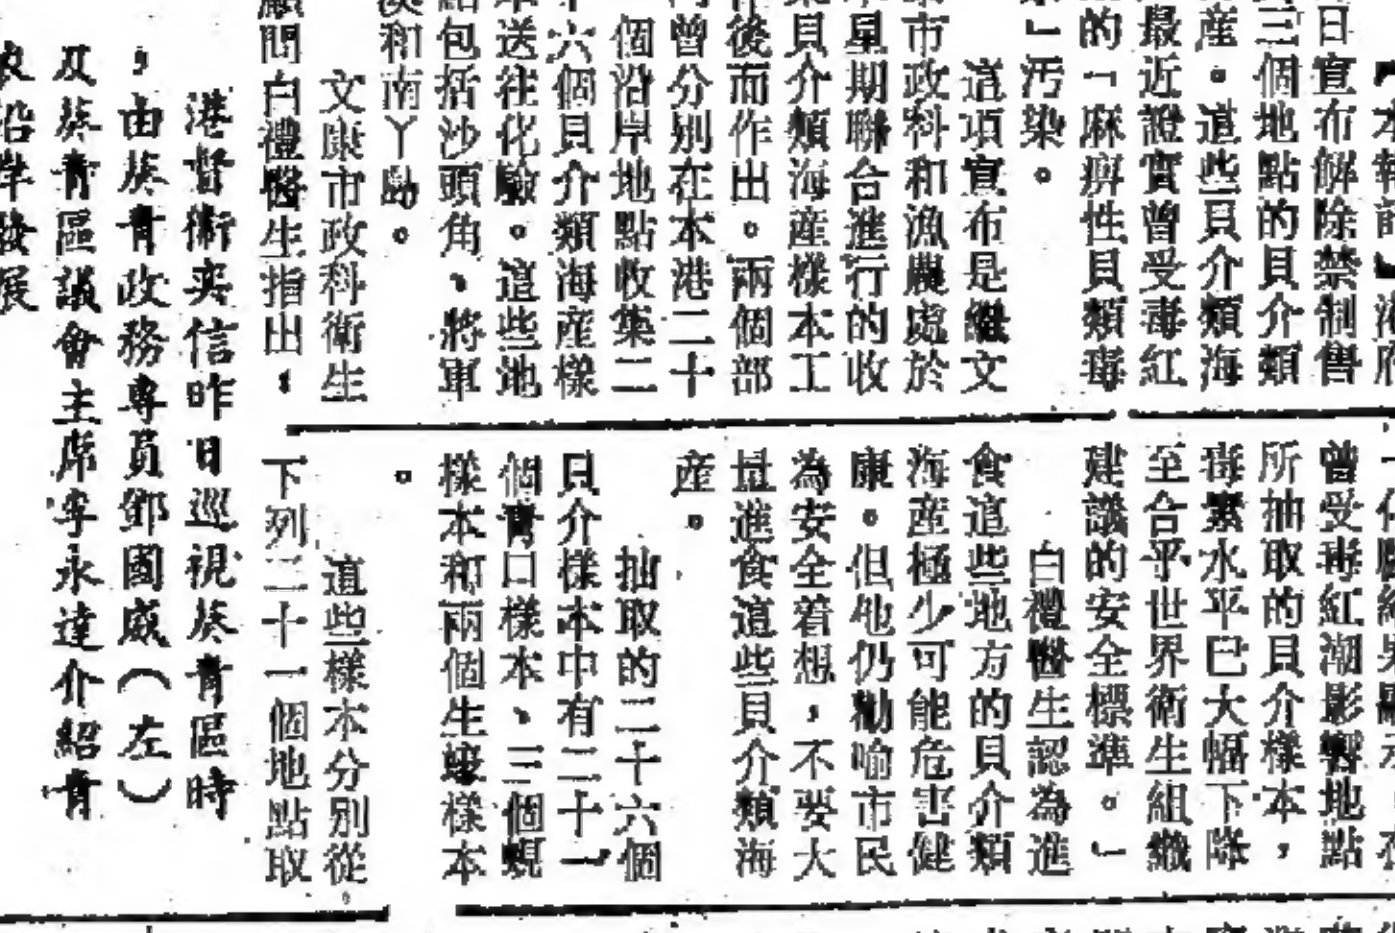 【本報訊】港府
日宣布解除禁制售
三個地點的貝介類
產。這些貝介類海
最近證實曾受毒紅
的「麻痹性貝類毒
」污染。
這項宣布是繼文
市政科和漁農處於
星期聯合進行的收
貝介類海產樣本工
後而作出。兩個部
曾分別在本港二十
個沿岸地點收集二
六個貝介類海產樣
送往化驗。這些地
包括沙頭角、將軍
和南丫島。
文康市政科衛生
顧問白禮醫生指出：
曾受毒紅潮影響地點
所抽取的貝介樣本，
毒素水平已大幅下降
至合乎世界衛生組織
建議的安全標準。」
白禮醫生認為進
食這些地方的貝介類
海產極少可能危害健
康。但他仍勸喻市民
為安全着想，不要大
量進食這些貝介類海
產。
抽取的二十六個
貝介樣本中有二十一
個青口樣本、三個蜆
樣本和兩個生蠔樣本
。
這些樣本分別從
下列二十一個地點取
港督衛奕信昨日巡視葵青區時
，由葵青政務專員鄧國威（左）
及葵青區議會主席李永達介紹青
沿岸發展